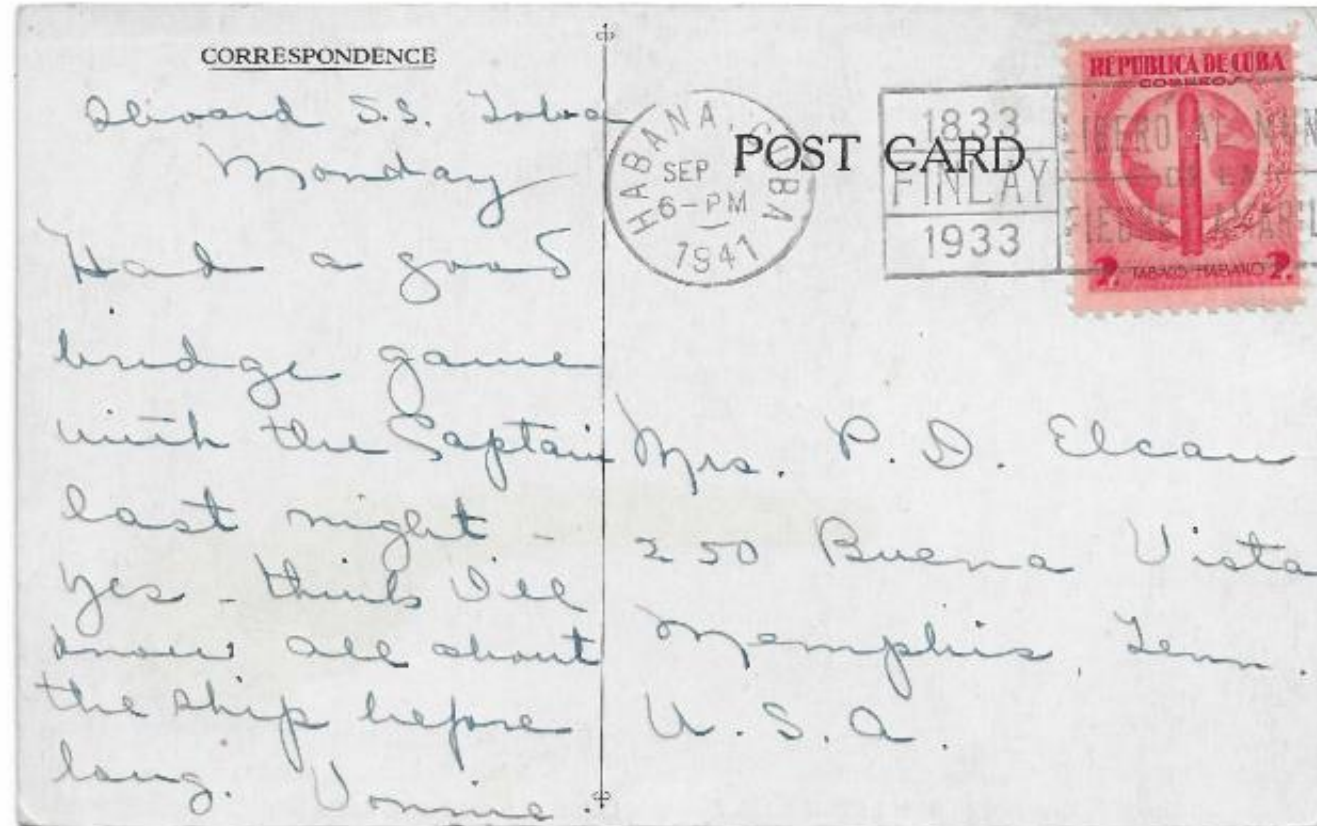 CORRESPONDENCE
Aboard S.S.
Monday
Had a good
bridge game
with the Captain
last night -
yes - think I'll
know all about
the ship before
long. Vonnie.
POST CARD
HABANA, CUBA
SEP
6-PM
1941
1833
FINLAY
1933
REPUBLICA DE CUBA
CORREOS
2 TABACO HABANO 2
Mrs. P. D. Elcan
250 Buena Vista
Memphis, Tenn.
U.S.A.